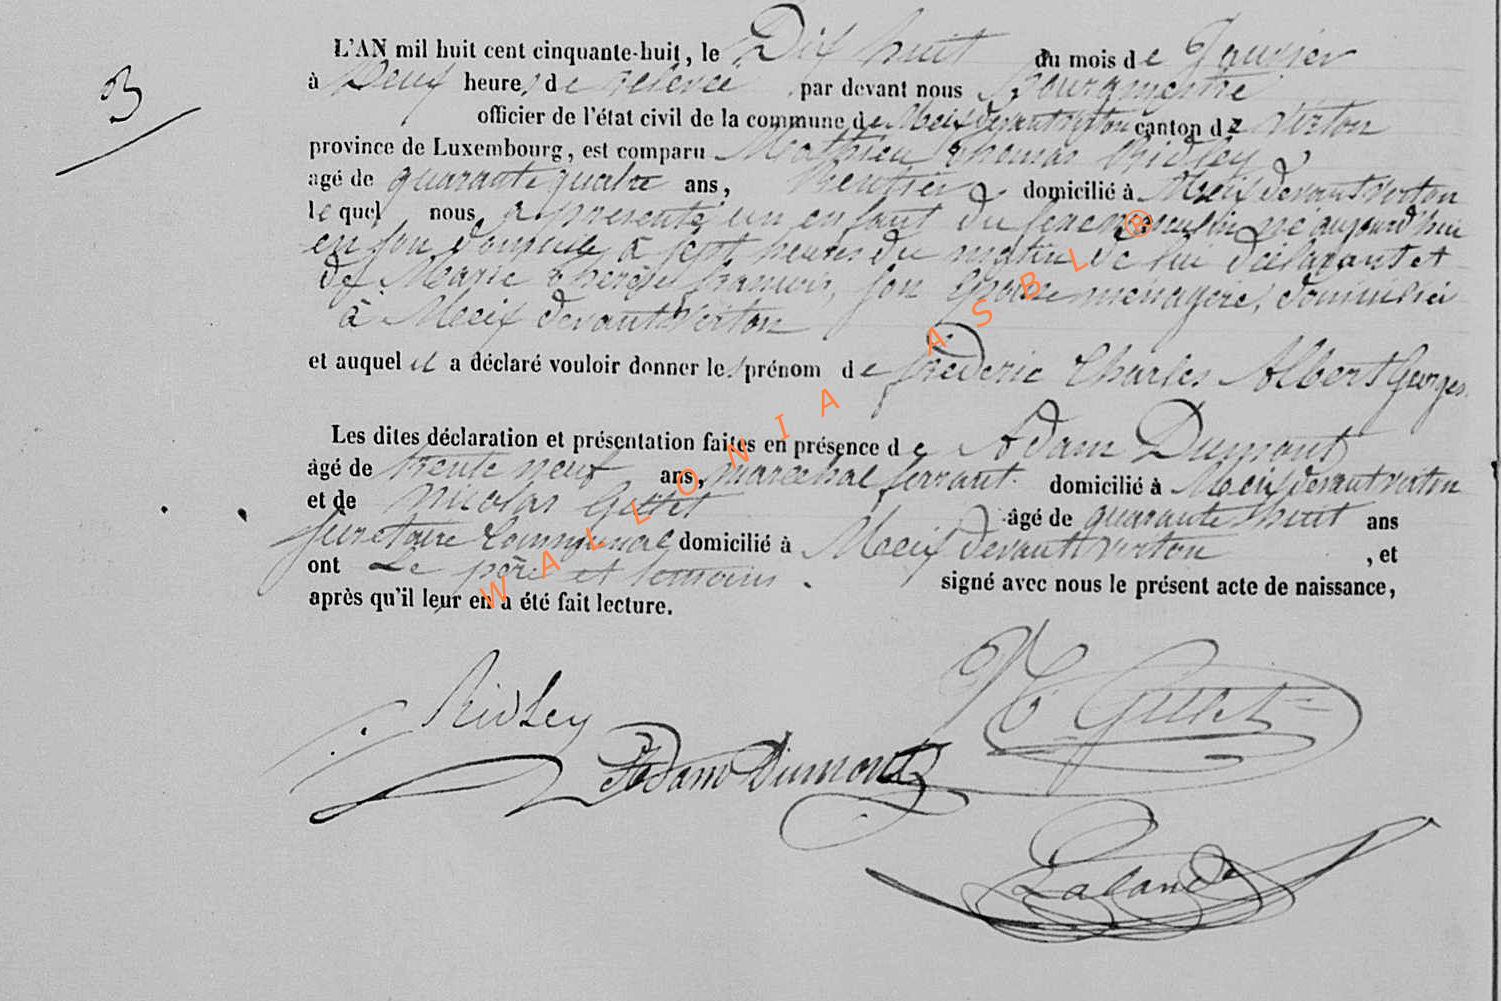 3
L'AN mil huit cent cinquante-huit, le Dix huit du mois de Janvier
à Deux heures de relevée par devant nous Bourgmestre
officier de l'état civil de la commune de Meix devant virton canton de Virton
province de Luxembourg, est comparu Mathieu Thomas Ridley
agé de quarante quatre ans, Rentier domicilié à Meix devant Virton
lequel nous a présenté un enfant du sexe masculin né aujourd'hui
en son domicile à sept heures du matin de lui déclarant et
de Marie Thérèse François, son épouse ménagère, domiciliée
à Meix devant Virton
et auquel il a déclaré vouloir donner les prénom de Fréderic Charles Albert Georges
Les dites déclaration et présentation faites en présence de Adam Dumont
âgé de trente neuf ans, maréchal ferrant domicilié à Meix devant virton
et de Nicolas âgé de quarante huit ans
secrétaire Communal domicilié à Meix devant Virton, et
ont Le père et temoins signé avec nous le présent acte de naissance,
après qu'il leur en a été fait lecture.
Ridley
Adam Dumont
Lalande
WALLONIA ASBL ®